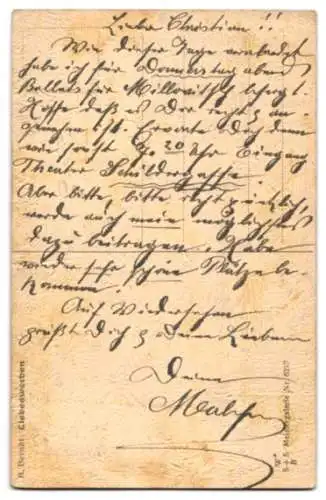 Lieber Christian !!
Wie dieser Tage verabredet
habe ich für Donnerstag abend
Billets für Millowitsch besorgt.
Hoffe daß es Dir recht & an-
genehm ist. Erwarte Dich dann
wie sonst 7.20 Uhr Eingang
Theater Schildergasse.
Aber bitte, bitte recht pünktlich,
werde auch mein möglichstes
dazu beitragen. Habe
wieder sehr schöne Plätze be-
kommen!
Auf Wiedersehen
grüßt Dich & Deine Lieben
Deine
R. Liebeswerben
S & S Meistergalerie Nr. 
W
B